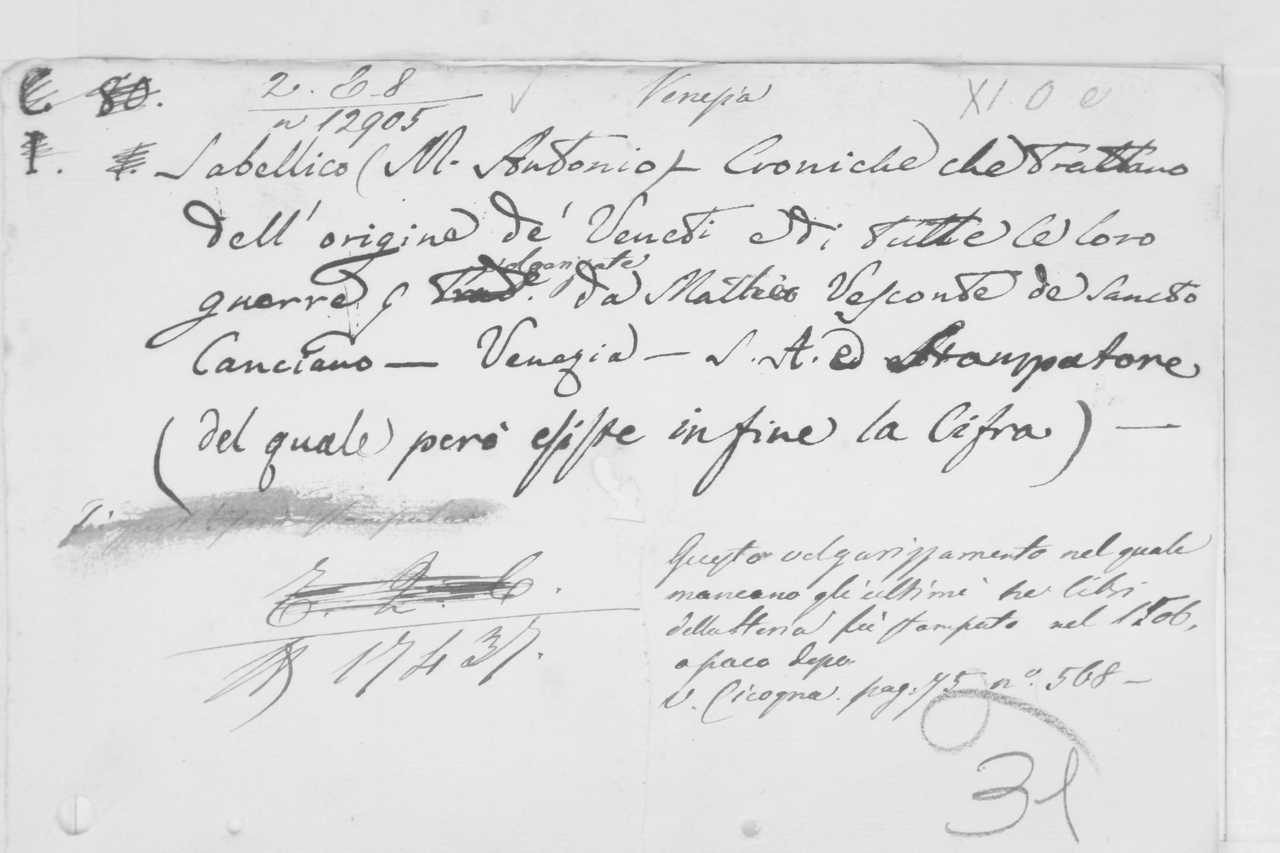 2. E. 8
n 12905
Venezia
XI. O e
C 80.
I. Sabellico (M. Antonio) – Croniche che trattano
dell' origine de' Veneti e di tutte le loro
volgarizzate
guerre, Trad.e da Matteo Vesconte de Sancto
Canciano — Venezia — S. A. ed Stampatore
(del quale però esiste in fine la Cifra) —
E. 2. C.
17437.
Questo volgarizzamento nel quale
mancano gli ultimi tre libri
della Storia fù stampato nel 1506,
o poco dopo
v. Cicogna. pag. 75 n.o 568 —
31